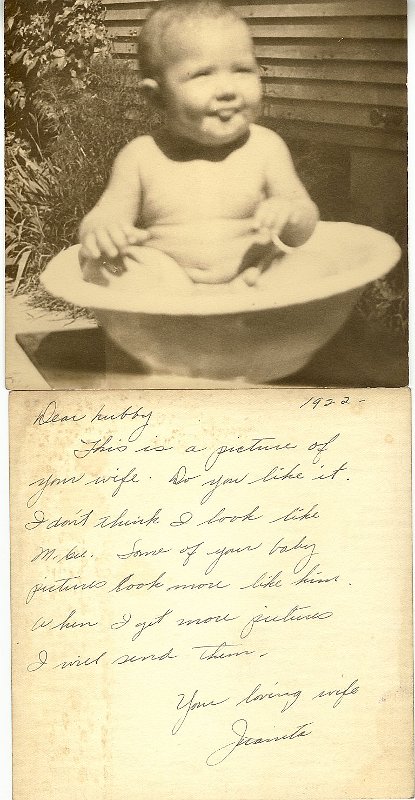 1922-
Dear hubby
This is a picture of
your wife. Do you like it.
I don't think I look like
M. Cee. Some of your baby
pictures look more like him.
When I get more pictures
I will send them.
Your loving wife
Juanita